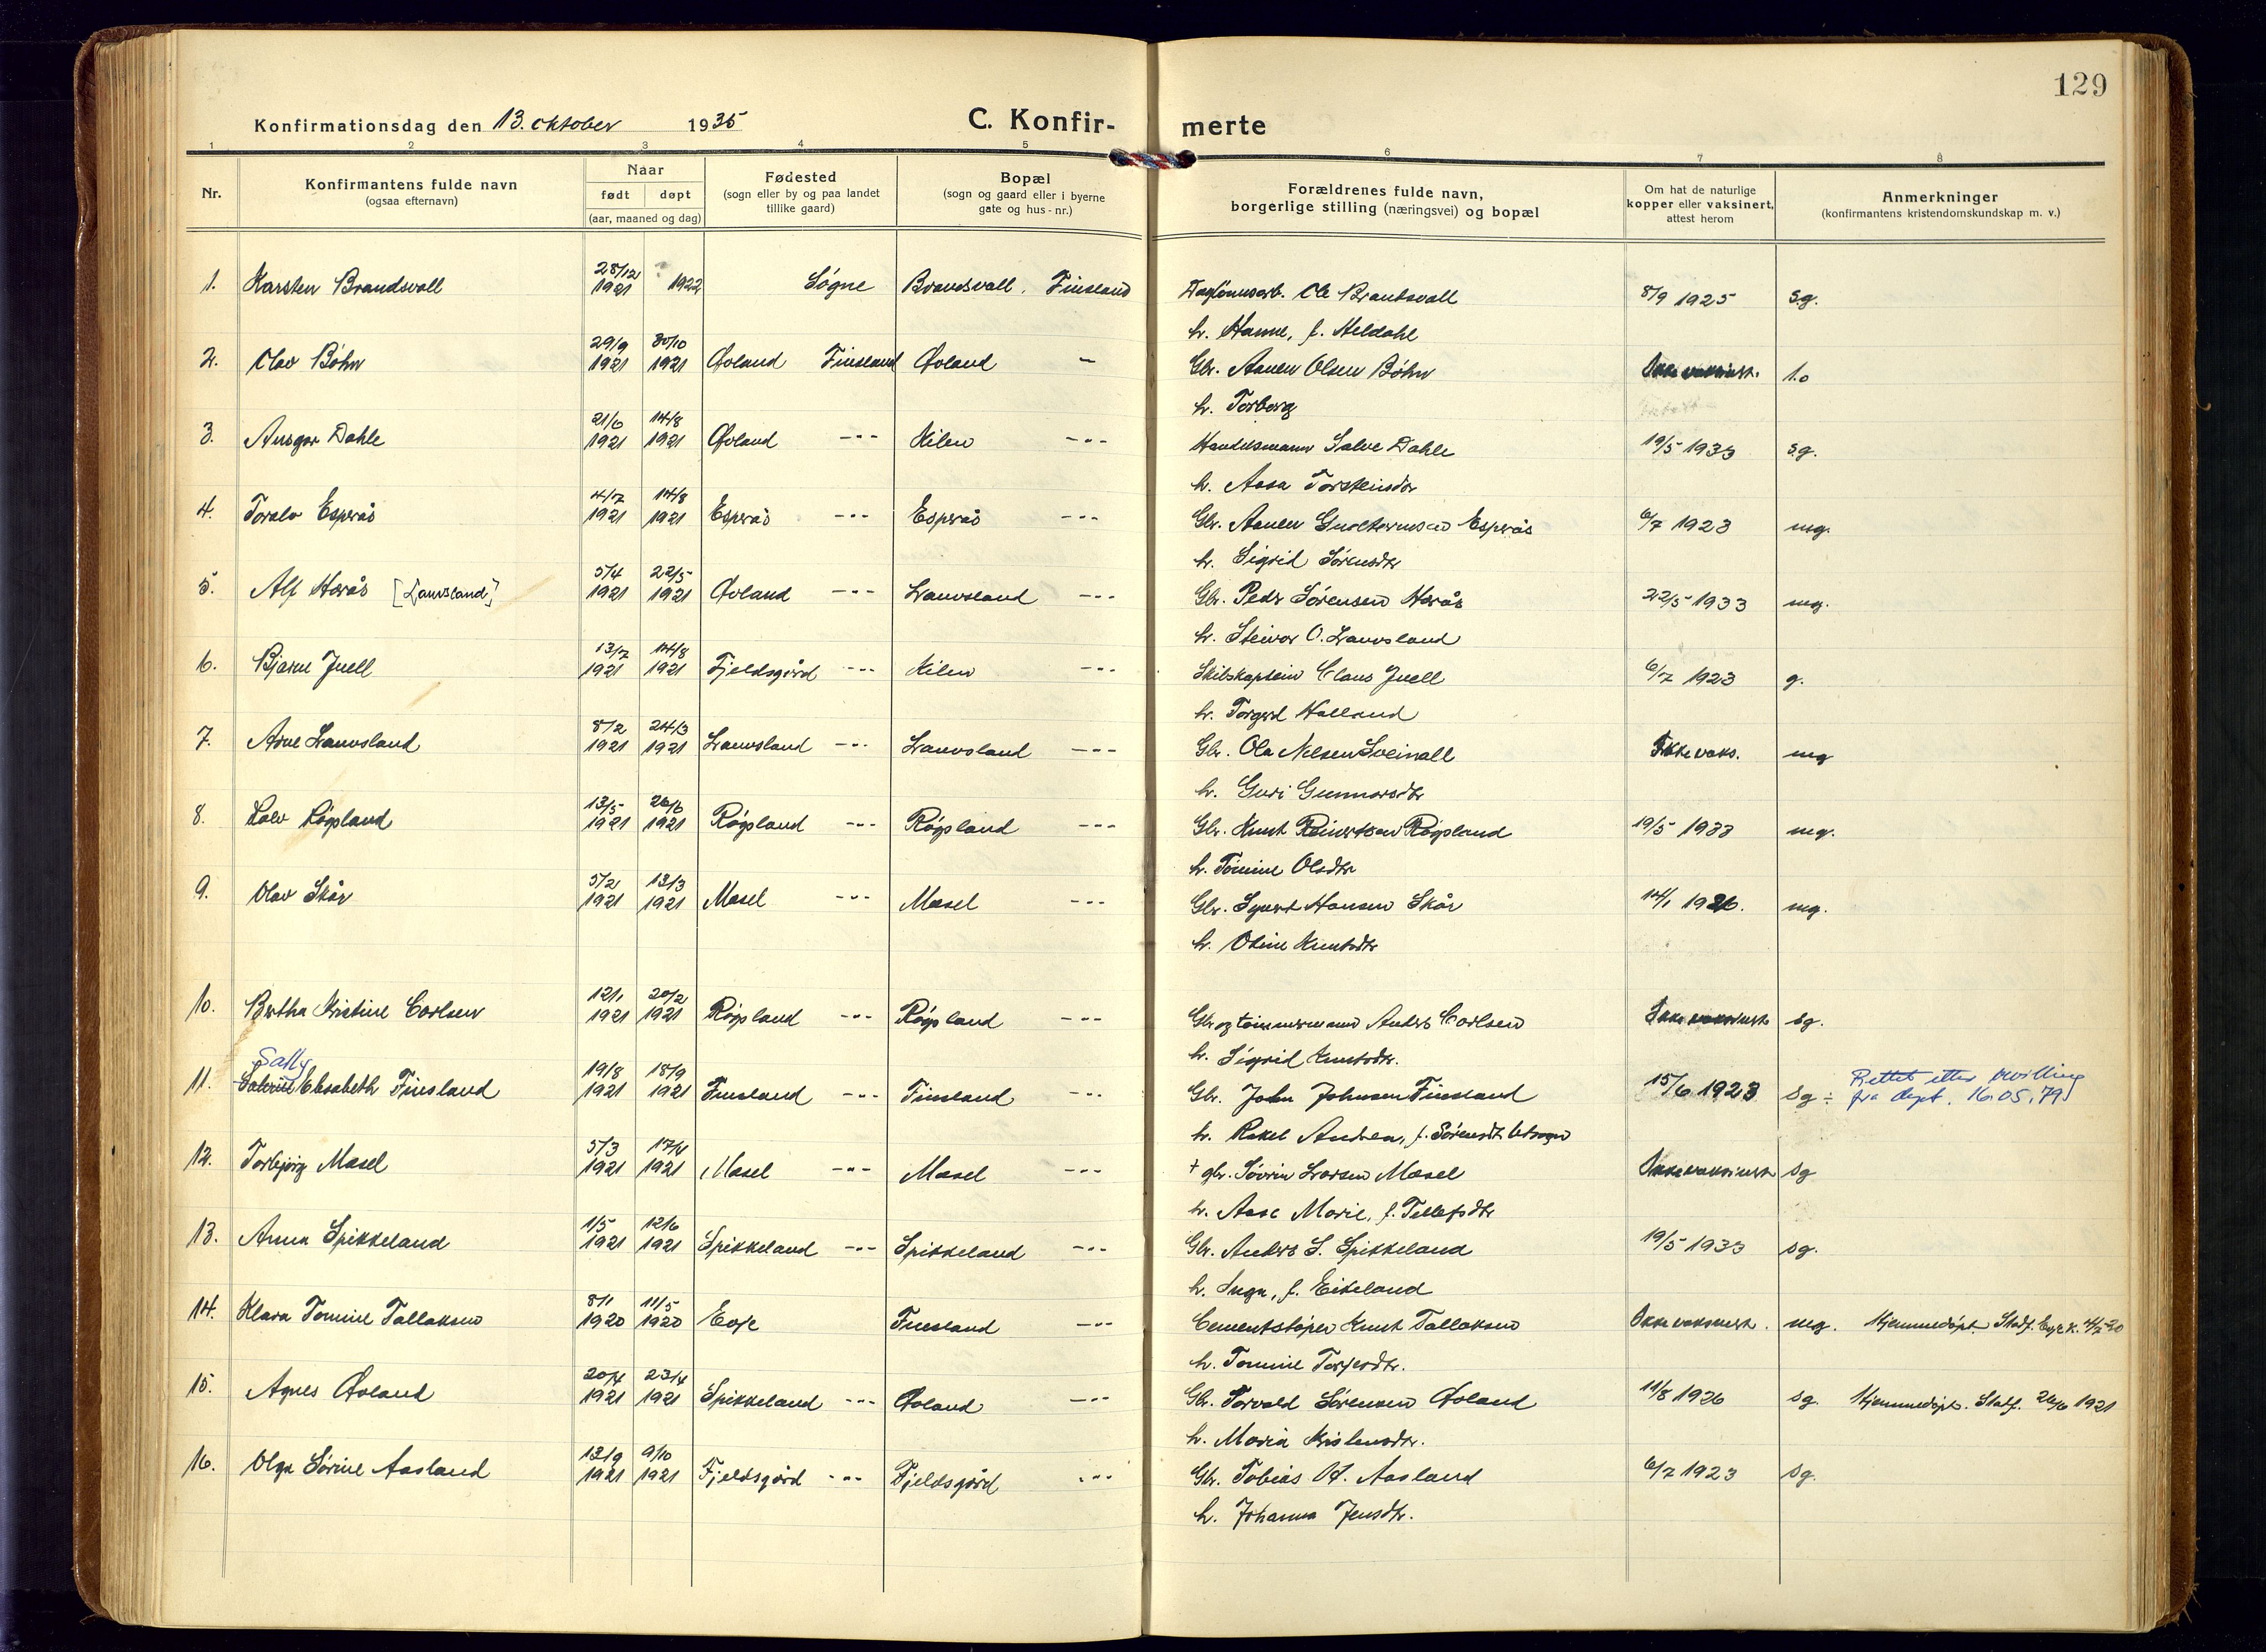 129
Konfirmationsdag den 13. oktober 1935
C. Konfir- merte
1 2 3 4 5 6 7 8
Nr. Konfirmantens fulde navn (ogsaa efternavn) Naar født døpt (aar, maaned og dag) Fødested (sogn eller by og paa landet tillike gaard) Bopæl (sogn og gaard eller i byerne gate og hus-nr.) Forældrenes fulde navn, borgerlige stilling (næringsvei) og bopæl Om hat de naturlige kopper eller vaksinert, attest herom Anmerkninger (konfirmantens kristendomskundskap m. v.)
1. Karsten Brandsvoll 28/12 1921 ? 1922 Søgne Brandsvoll, Finsland Daglønnsarb. Ole Brandsvoll 8/9 1925 s.g.
h. Hanne, f. Heldahl
2. Olav Bøhn 29/9 1921 30/10 1921 Øvland Finsland Øvland – Gbr. Aanen Olsen Bøhn Ikke vaksinert. 1.0
h. Torborg
3. Ansgar Dahle 21/6 1921 14/8 1921 Øvland --- Kilen --- Handelsmann Salve Dahle 19/5 1933 s.g.
h. Aasa Torsteinsdtr
4. Toralv Esperås 4/7 1921 14/8 1921 Esperås --- Esperås --- Gbr. Aanen Guttormsen Esperås 6/7 1923 mg.
h. Sigrid Sørensdtr
5. Alf Herås [Lauvsland] 5/4 1921 22/5 1921 Øvland --- Lauvsland --- Gbr. Peder Sørensen Herås 22/5 1933 mg.
h. Steinar O. Lauvsland
6. Bjarne Juell 13/7 1921 14/8 1921 Fjeldsgård --- Kilen --- Skibskaptein Claus Juell 6/7 1923 g.
h. Torgerd Halland
7. Arne Lauvsland 8/2 1921 24/3 1921 Lauvsland --- Lauvsland --- Gbr. Ola Nilsen Sveinall Ikke vaks. mg
h. Guri Gunnarsdtr
8. Salv Røgsland 13/5 1921 26/6 1921 Røgsland --- Røgsland --- Gbr. Knut Reinertsen Røgsland 19/5 1933 mg.
h. Tomine Olsdtr
9. Olav Skår 5/2 1921 13/3 1921 Mæsel --- Mæsel --- Gbr. Syvert Hansen Skår 14/1 1926. mg.
h. Oline Knutsdtr
10. Bertha Kristine Carlsen 12/1 1921 20/2 1921 Røgsland --- Røgsland --- Gbr og tømmermann Anders Carlsen Ikke vaksinert sg.
h. Sigrid Knutsdtr.
Sally
11. Salvine Elisabeth Finsland 19/8 1921 18/9 1921 Finsland --- Finsland --- Gbr. John Johnsen Finsland 15/6 1923 sg ÷ Rettet etter bevilling fra dept. 16.05.79
h. Rakel Andrea, f. Sørensdt.
12. Torbjørg Mæsel 5/3 1921 17/4 1921 Mæsel --- Mæsel --- † gbr. Søvrin Larsen Mæsel Ikke vaksinert sg
h. Aase Marie, f. Tellefsdtr
13. Anna Spikkeland 1/5 1921 12/6 1921 Spikkeland --- Spikkeland --- Gbr. Anders S. Spikkeland 19/5 1933 sg.
h. Inga, f. Eikeland
14. Klara Tomine Tallaksen 8/1 1920 11/5 1920 Evje Finsland --- Cementstøper Knut Tallaksen Ikke vaksinert. mg. Hjemmedøpt. Stadf. Evje k. 4/7 20
h. Tomine Torjersdtr.
15. Agnes Øvland 20/4 1921 23/4 1921 Spikkeland --- Øvland --- Gbr. Torvald Sørensen Øvland 11/8 1926 sg. Hjemmedøpt. Stadf. 26/6 1921
h. Maria Kristensdtr.
16. Olga Sørine Aasland 13/9 1921 9/10 1921 Fjeldsgård --- Fjeldsgård --- Gbr. Tobias A. Aasland 6/7 1923 sg.
h. Johanna Jensdtr.